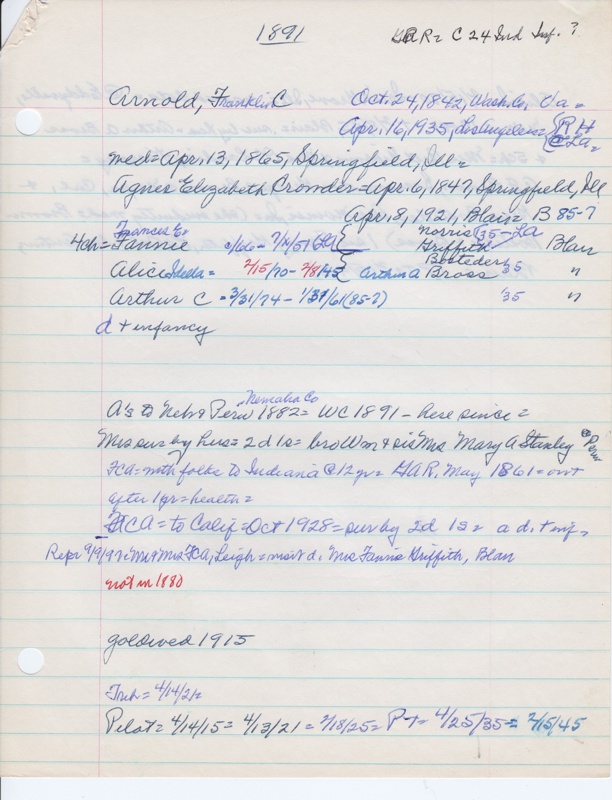 1891
GAR = C 24 Ind Inf. ?
Arnold, Franklin C Oct. 24, 1842, Wash. Co, Va =
Apr. 16, 1935, Los Angeles = { R H @ La =
med = Apr. 13, 1865, Springfield, Ill =
Agnes Elizabeth Crowder = Apr. 6, 1847, Springfield, Ill
Apr. 8, 1921, Blair = B 85-7
Frances E. Norris 35 - LA
4ch = Fannie c/66 - 7/4/51 (LA) { Griffith Blair
Bosteder
Alice Idella = 2/15/70 - 2/8/45 { Arthur A Bross 35 "
Arthur C = 3/31/74 - 1/31/61 (85-7) '35 "
d + infancy
Nemaha Co
A's to Neb & Peru 1882 = WC 1891 - here since =
Mrs sur by hus = 2d 1s = bro Wm + sis Mrs Mary A Stanley @ Peru
FCA = with folks to Indiana @ 12 yr = GAR, May 1861 = out
after 1 yr = health =
FCA = to Calif = Oct 1928 = sur by 2d 1s = a d. + inf =
Repr 9/9/97 = Mr + Mrs FCA, Leigh = visit d. Mrs Fannie Griffith, Blair
not in 1880
goldwed 1915
Trib = 4/14/21 =
Pilot = 4/14/15 = 4/13/21 = 2/18/25 = P-T = 4/25/35 = 2/15/45